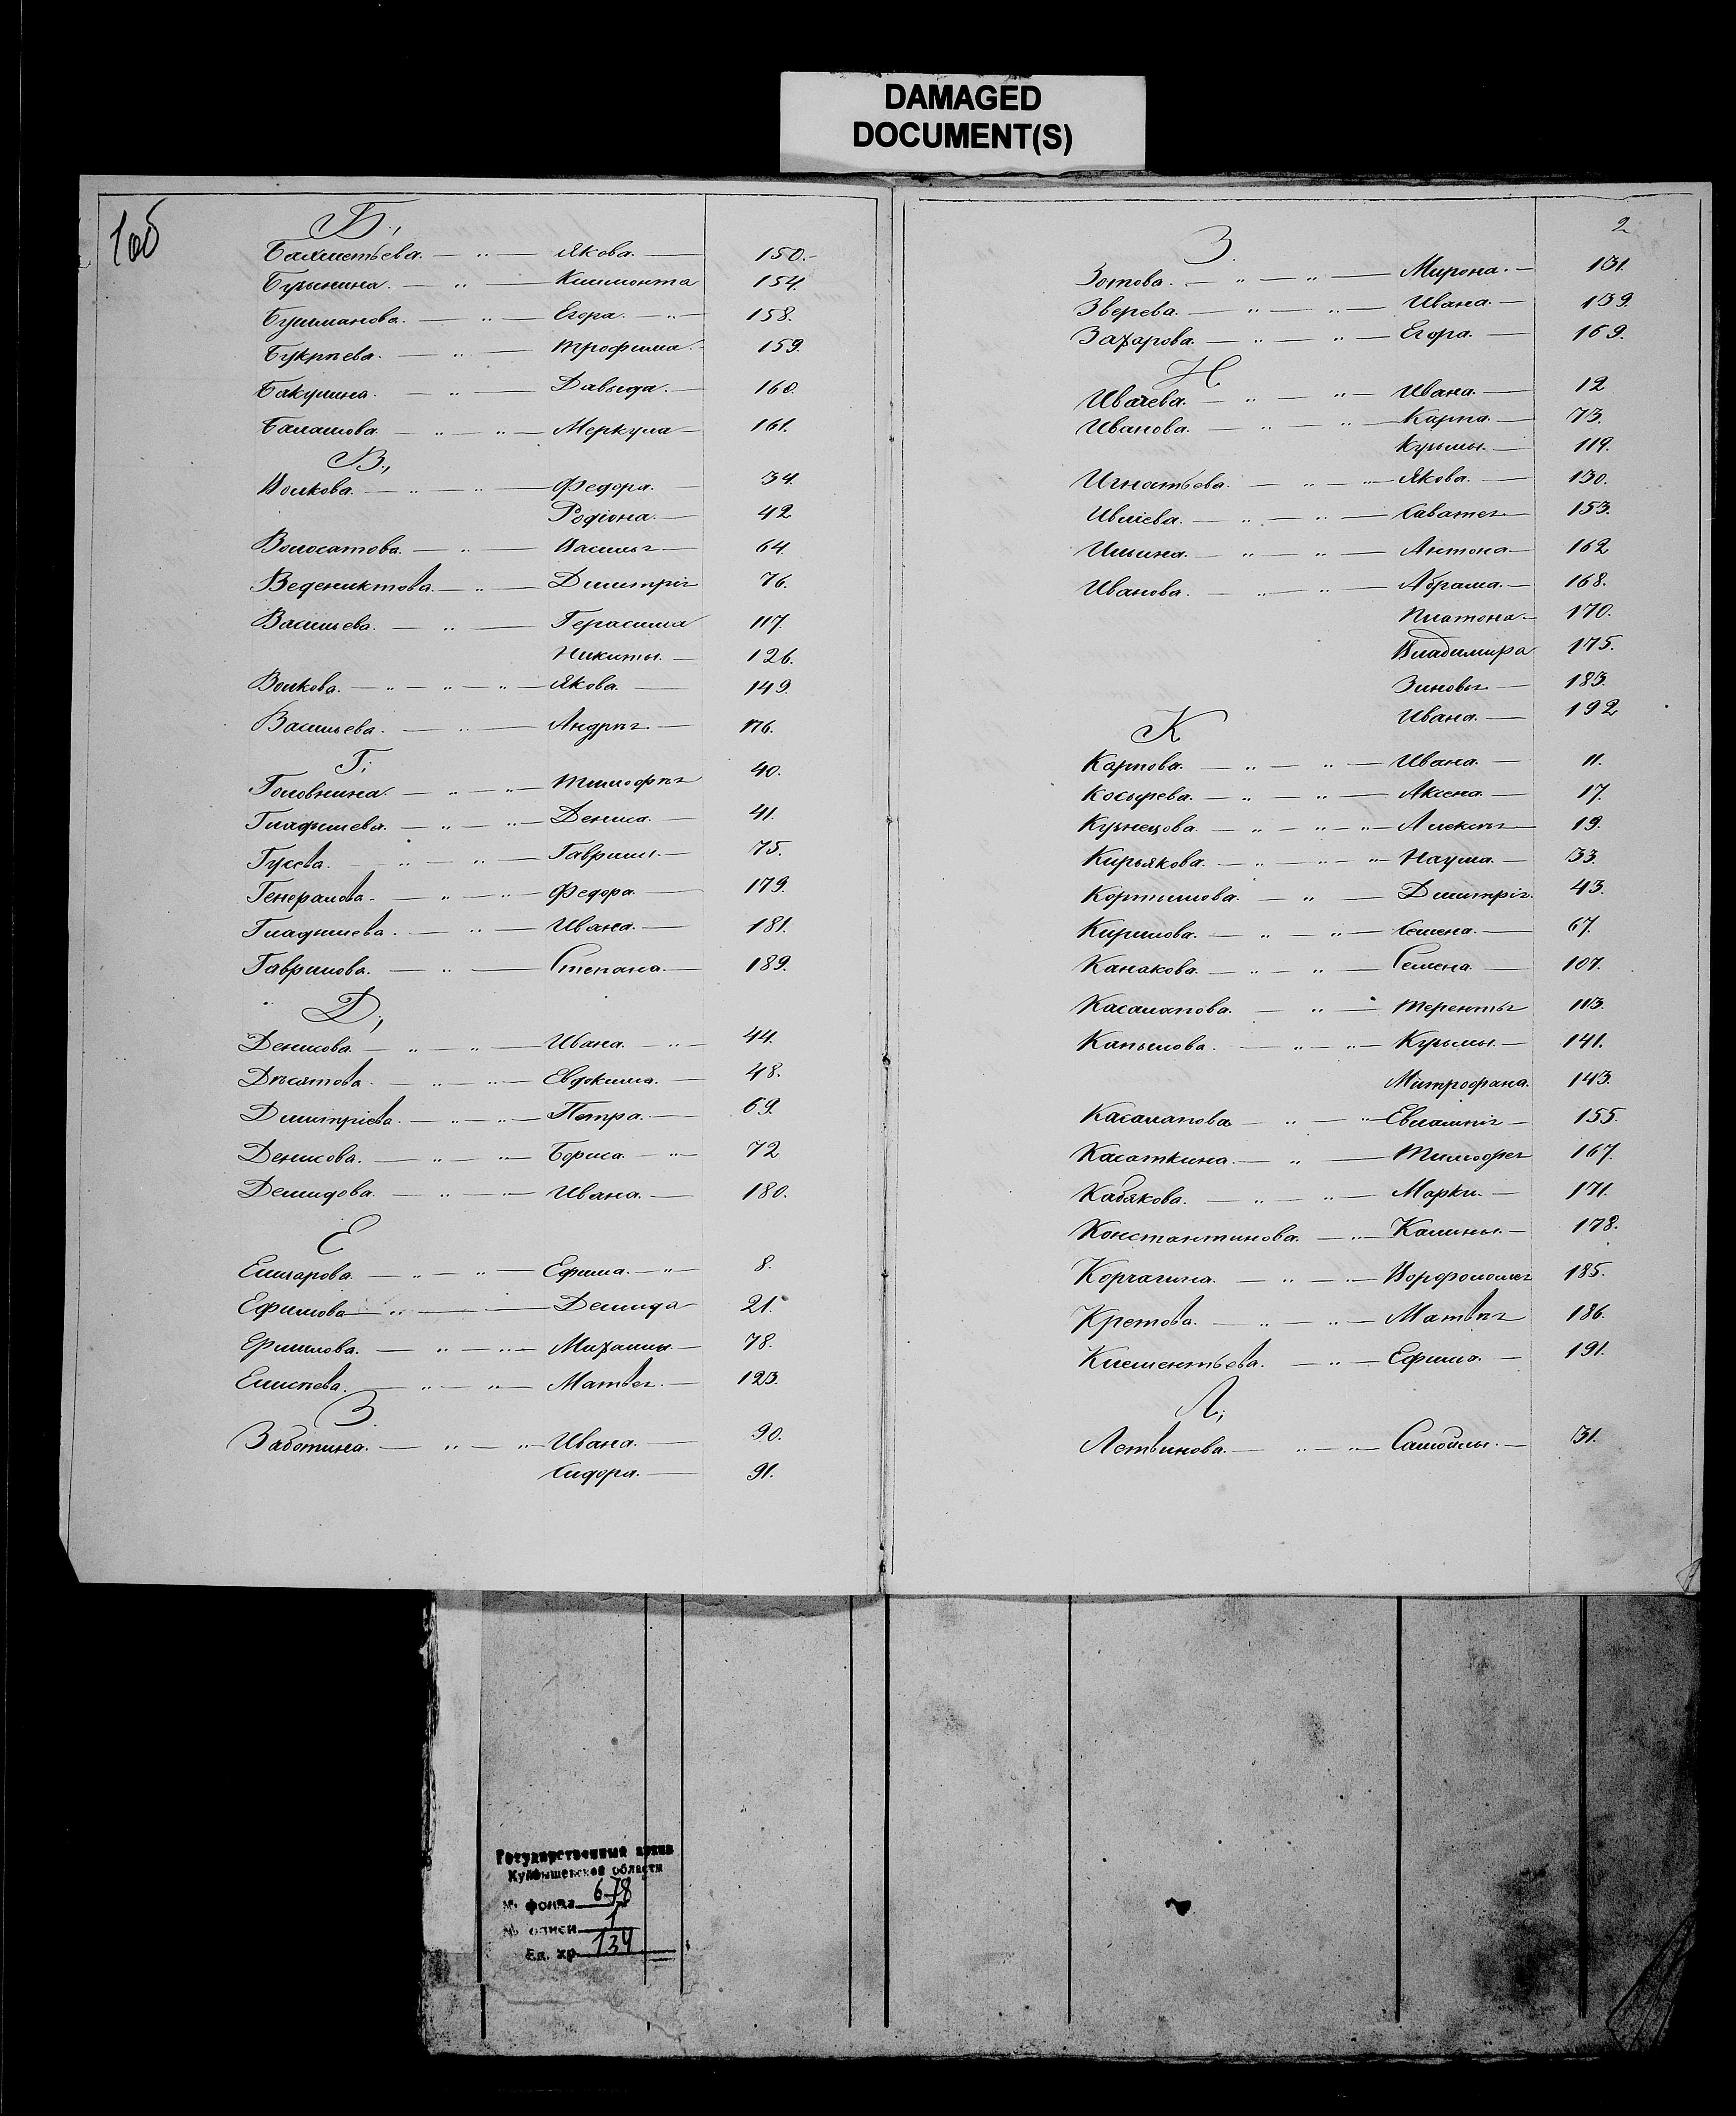 DAMAGED
DOCUMENT(S)
1об
Б.,
Бахметьева. — „ — Якова. — 150.-
Климонта 154.
Бушманова. — „ — Егора. — „ — 158.
Букрѣева. — „ — Трофима. - 159.
Бакулина. — „ — Давыда. — 160.
Балашова. — „ — „ — Меркула — 161.
В.,
Волкова. — „ — „ — Федора. — 34.
Родіона. — 42
Волосатова. — „ — Василья — 64.
Ведениктова. — „ — Дмитрія 76.
Васильева. — „ — Герасима 117.
Никиты. — 126.
Волкова. — „ — „ — „ — Якова. — 149.
Васильева. — „ — Андрѣя — 176.
Г;
Головнина. — „ — „ — Тимофѣя 40.
Гладышева. — „ — „ — Дениса. — 41.
Гусева. — „ — „ — Гаврилы. — 75.
Генералова. — „ — „ — Федора. — 179.
Гладышева. — „ — Ивана. — 181.
Гаврилова. — „ — Степана. — 189.
Д;
Денисова. — „ — „ — Ивана. — „ — 44.
Дѣсятова. — „ — „ — Евдокима. — 48.
Дмитріева. — „ — „ — Петра. — 69.
Денисова. — „ — „ — Бориса. — „ — 72
Демидова. — „ — „ — Ивана. — 180.
Е
Елшарова. — „ — „ — Ефима. — „ — 8.
Ефимова — „ — Демида 21.
Ермилова. — „ — „ — Михайлы. — 78.
Елисѣева. — „ — „ — Матвея. — 123.
З.
Заботина. — „ — „ — Ивана. — 90.
Сидора. — 91.
2
З.
Зотова. — „ — „ — Мирона. — 131.
Зверева. — „ — „ — Ивана. — 139.
Захарова. — „ — „ — Егора. — 169.
И
Ивлева. — „ — „ — Ивана. — 12
Иванова. — „ — „ — Карпа. — 73.
Кузьмы. — 119.
Игнатьева. — „ — „ — Якова. — 130.
Ивлієва. — „ — „ — Саватея — 153.
Ильина. — „ — „ — Антона — 162
Иванова. — „ — „ — Абрама. — 168.
Платона — 170.
Владимира 175.
Зиновья — 183.
Ивана. — 192
К
Карпова. — „ — „ — Ивана. — 11.
Косырева. — „ — „ — Аксена. — 17.
Кузнецова. — „ — „ — „ — Алексѣя — 19.
Кирьякова. — „ — „ — „ — Наума. — 33.
Кортылова. — „ — Дмитрія. 43.
Кирилова. — „ — „ — Семена. — 67.
Канакова. — „ — „ — Семена. — 107.
Касалапова. — „ — Терентья 113.
Капылова. — „ — „ — Кузьмы. — 141.
Митрофана. 143.
Касалапова — „ — „ — Евлампія — 155.
Касаткина. — „ — Тимофея 167.
Кабякова. — „ — „ — Марки. — 171.
Константинова. — „ — Калины. — 178.
Корчагина. — „ — „ — Ворфоломея 185.
Кретова. — „ — „ — Матвѣя 186.
Клементьева. — „ — Ефима. — 191.
Л;
Летвинова. — „ — „ — Самойлы. — 31.
Государственный архив
Куйбышевской области
№ фонда 678
№ описи 1
Ед. хр. 134